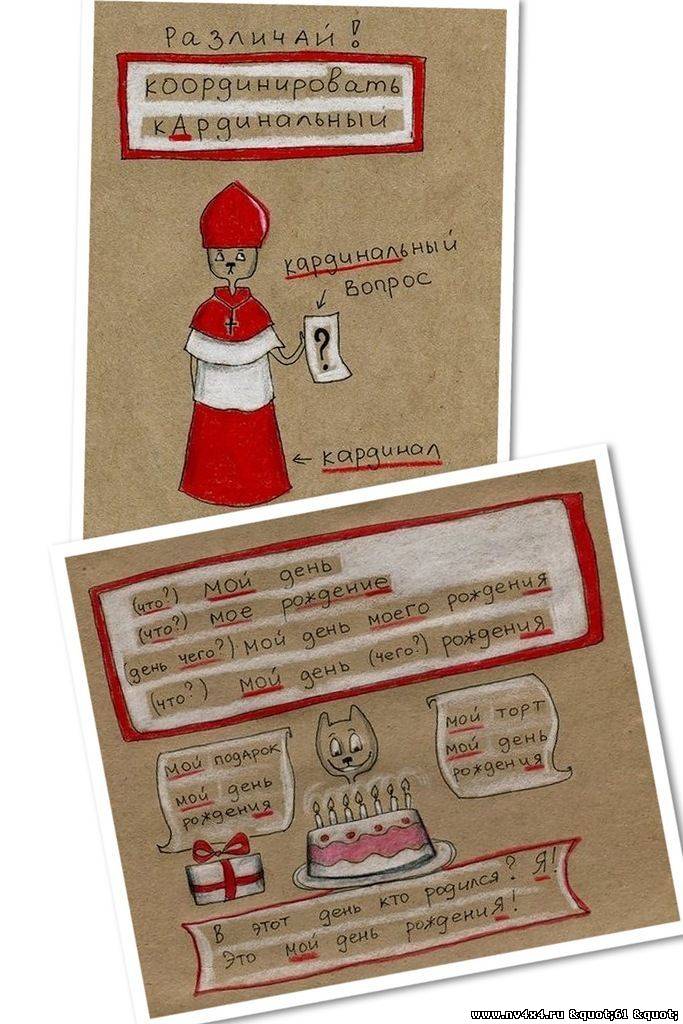 Различай!
координировать
кАрдинальный
кардинальный
вопрос
кардинал
(что?) мой день
(что?) мое рождение
(день чего?) мой день моего рождения
(что?) мой день (чего?) рождения
мой подарок
мой день
рождения
мой торт
мой день
рождения
В этот день кто родился? Я!
Это мой день рождениЯ!
www.nv4x4.ru &quot;61 &quot;